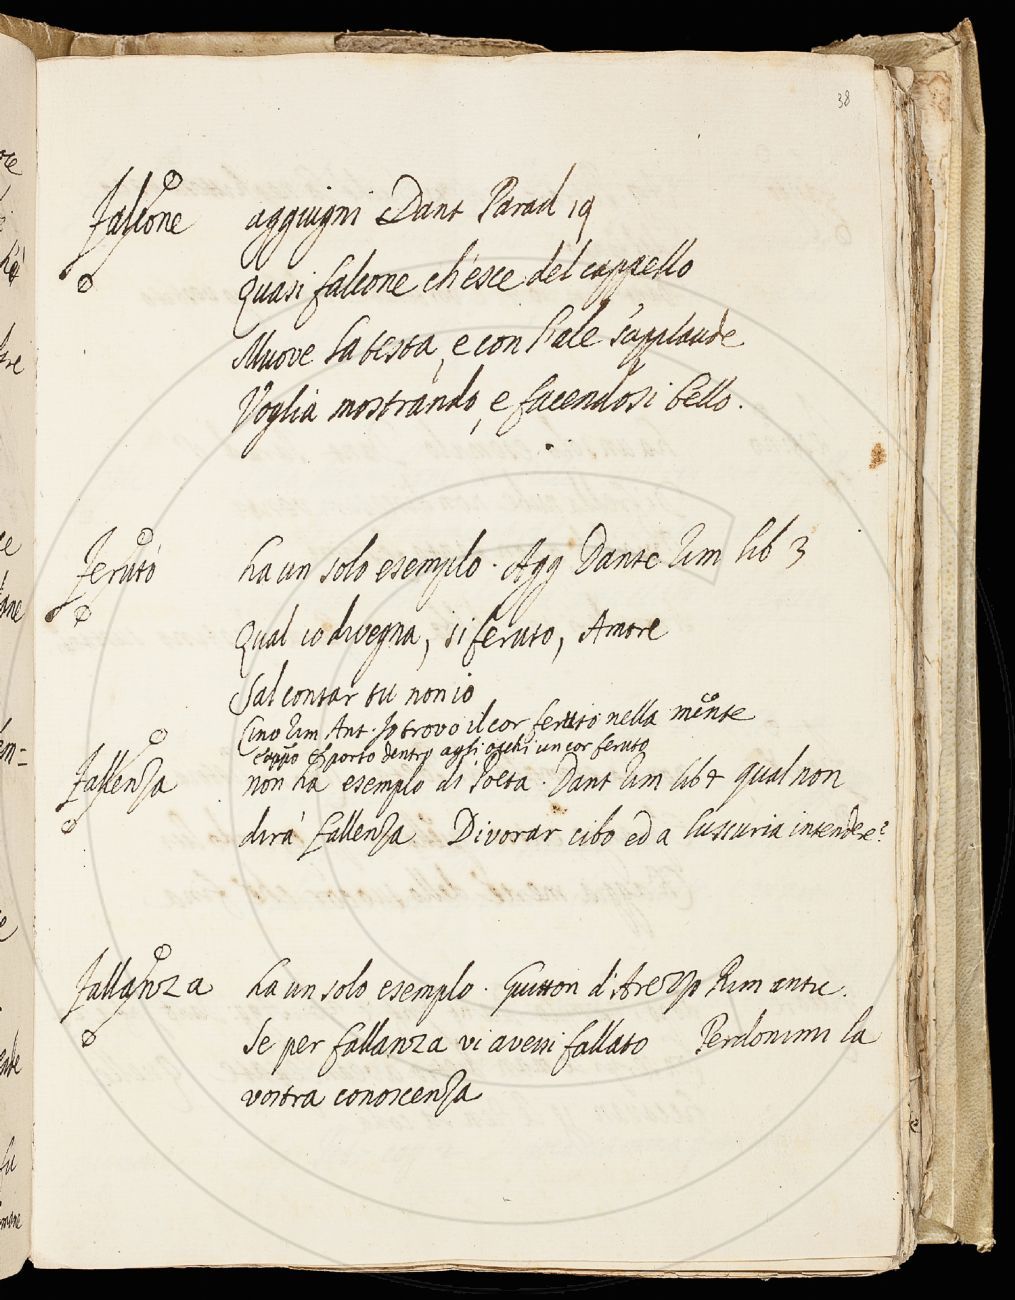 38
Falcone aggiugni Dant Parad 19
Quasi falcone ch'esce del cappello
Muove la testa, e con l'ale s'applaude
Voglia mostrando, e facendosi bello.
Feruto ha un solo esempio. Agg Dante Rim lib 3
Qual io divegna, si feruto, Amore
Sal contar tu non io
Cino Rim Ant. Io trovo il cor feruto nella mente
e porto dentro agli occhi un cor feruto
Fallenza non ha esempio di Poeta. Dant Rim lib 4 qual non
dirà fallenza Divorar cibo ed a lussuria intendere?
Fallanza ha un solo esempio. Guitton d'Arezzo Rim antic.
Se per fallanza vi avessi fallato Perdonimi la
vostra conoscenza